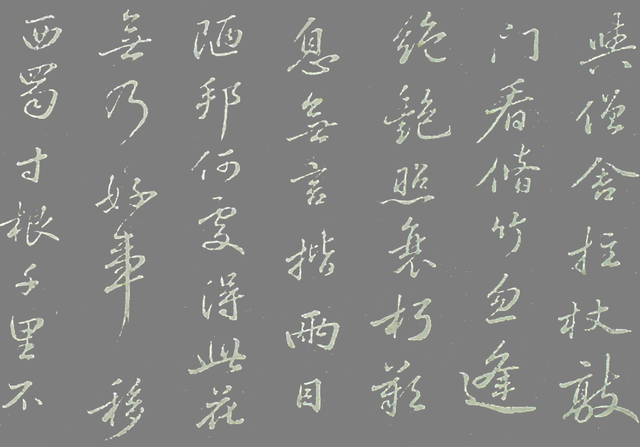 與僧舍拄杖敲
門看脩竹忽逢
絶艶照衰朽歎
息無言揩兩目
陋邦何處得此花
無乃好事移
西蜀寸根千里不